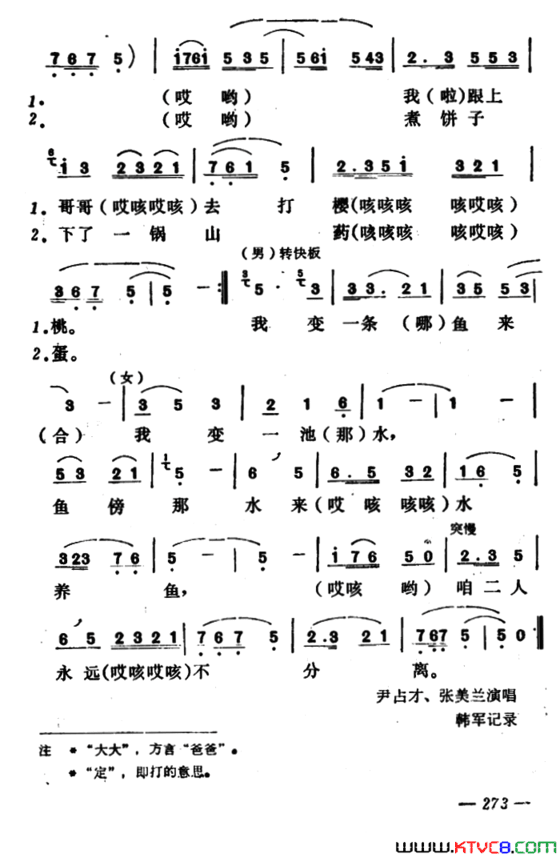 7 6 7 5 ) | i76i 5 3 5 | 56i 543 | 2. 3 5 5 3 |
1. (哎 哟) 我(啦)跟上
2. (哎 哟) 煮 饼 子
i 3 2 3 2 1 | 7 6 1 5 | 2.35i 3 2 1 |
1. 哥哥(哎咳哎咳)去 打 樱(咳咳咳 咳哎咳)
2. 下了 一 锅 山 药(咦咳咳 咳哎咳)
(男)转快板
3 6 7 5 | 5 - :|| 5 · 3 | 33. 21 | 35 53 |
1. 桃。 我 变 一 条 (哪) 鱼 来
2. 蛋。
(女)
3 - | 3 5 3 | 2 1 6 | 1 - | 1 - |
(合) 我 变 一 池(那)水,
53 21 | 5 - | 6 5 | 6. 5 32 | 16 5 |
鱼 傍 那 水 来(哎 咳 咳咳)水
突慢
323 76 | 5 - | 5 - | i76 50 | 2.3 5 |
养 鱼, (哎咳 哟) 咱 二 人
6 5 2321 | 767 5 | 2.3 21 | 767 5 | 5 0 ||
永 远(哎咳哎咳)不 分 离。
尹占才、张美兰演唱
韩军记录
注 * “大大”,方言“爸爸”。
* “定”,即打的意思。
— 273 —
www.KTVC8.com